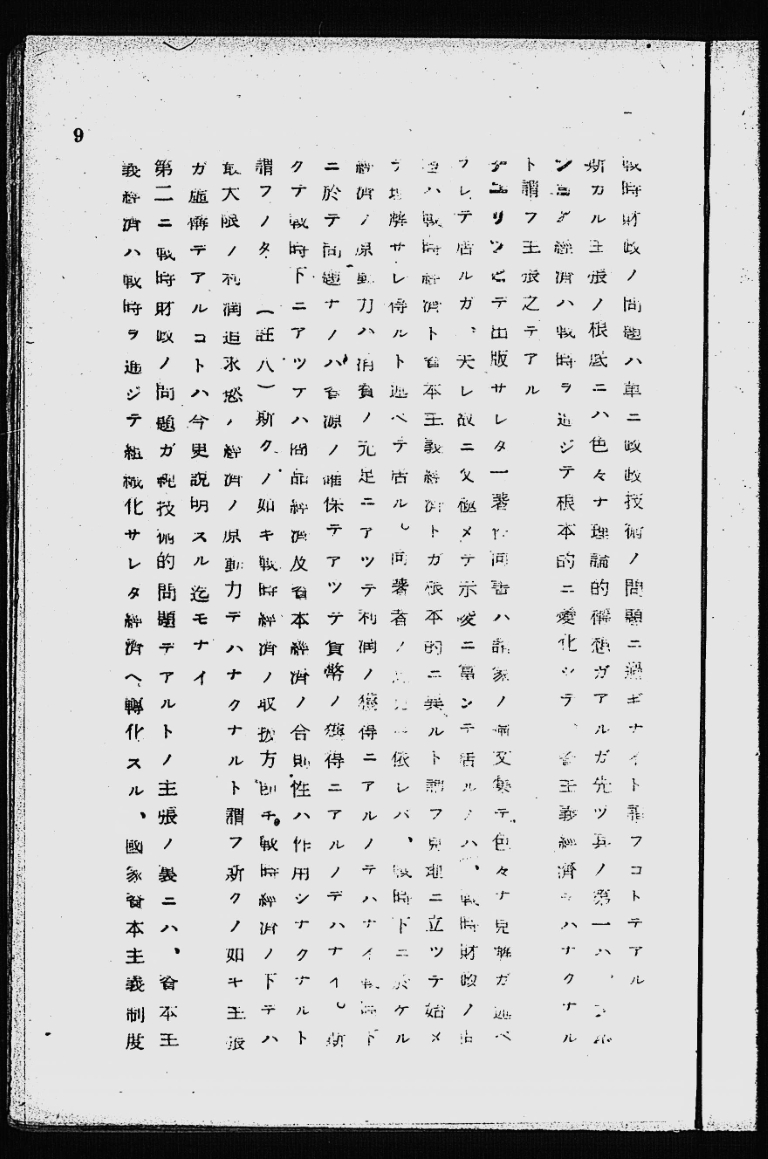 9
戰時財政ノ問題ハ單ニ財政技術ノ問題ニ過ギナイト謂フコトデアル
斯カル主張ノ根底ニハ色々ナ理論的構想ガアルガ先ヅ其ノ第一ハ、
經濟ハ戰時ヲ通ジテ根本的ニ變化シテ、資本主義經濟デハナクナル
ト謂フ主張之デアル
デ出版サレタ一著作同書ハ諸家ノ論文集デ色々ナ見解ガ述ベ
ラレテ居ルガ、夫レ故ニ又極メテ示唆ニ富ンデ居ルノハ、戰時財政ノ
ハ戰時經濟ト資本主義經濟トガ根本的ニ異ルト謂フ見地ニ立ツテ始メ
テ理解サレ得ルト述ベテ居ル。同著者ノ依レバ、戰時下ニ於ケル
經濟ノ原動力ハ消費ノ充足ニアツテ利潤ノ獲得ニアルノデハナイ戰時下
ニ於テ問題ナノハ資源ノ確保デアツテ貨幣ノ獲得ニアルノデハナイ。斯
クテ戰時下ニアツテハ商品經濟及資本經濟ノ合則性ハ作用シナクナルト
謂フノダ (註八) 斯クノ如キ戰時經濟ノ取扱方即チ戰時經濟ノ下デハ
最大限ノ利潤追求慾ノ經濟ノ原動力デハナクナルト謂フ斯クノ如キ主張
ガ虛構デアルコトハ今更說明スル迄モナイ
第二ニ戰時財政ノ問題ガ純技術的問題デアルトノ主張ノ裏ニハ、資本主
義經濟ハ戰時ヲ通ジテ組織化サレタ經濟ヘ轉化スル、國家資本主義制度